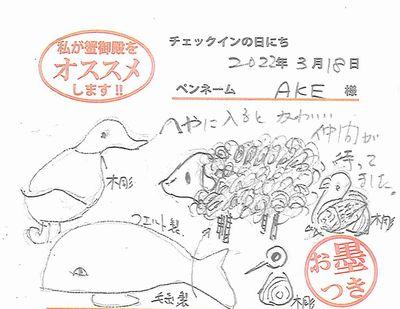 私が蟹御殿を
オススメ
します!!
チェックインの日にち
2022年 3月18日
ペンネーム AKE 様
へやに入ると かわいい
仲間が
待って
ました。
木彫
フエルト製
木彫
毛糸製
木彫
お墨
つき